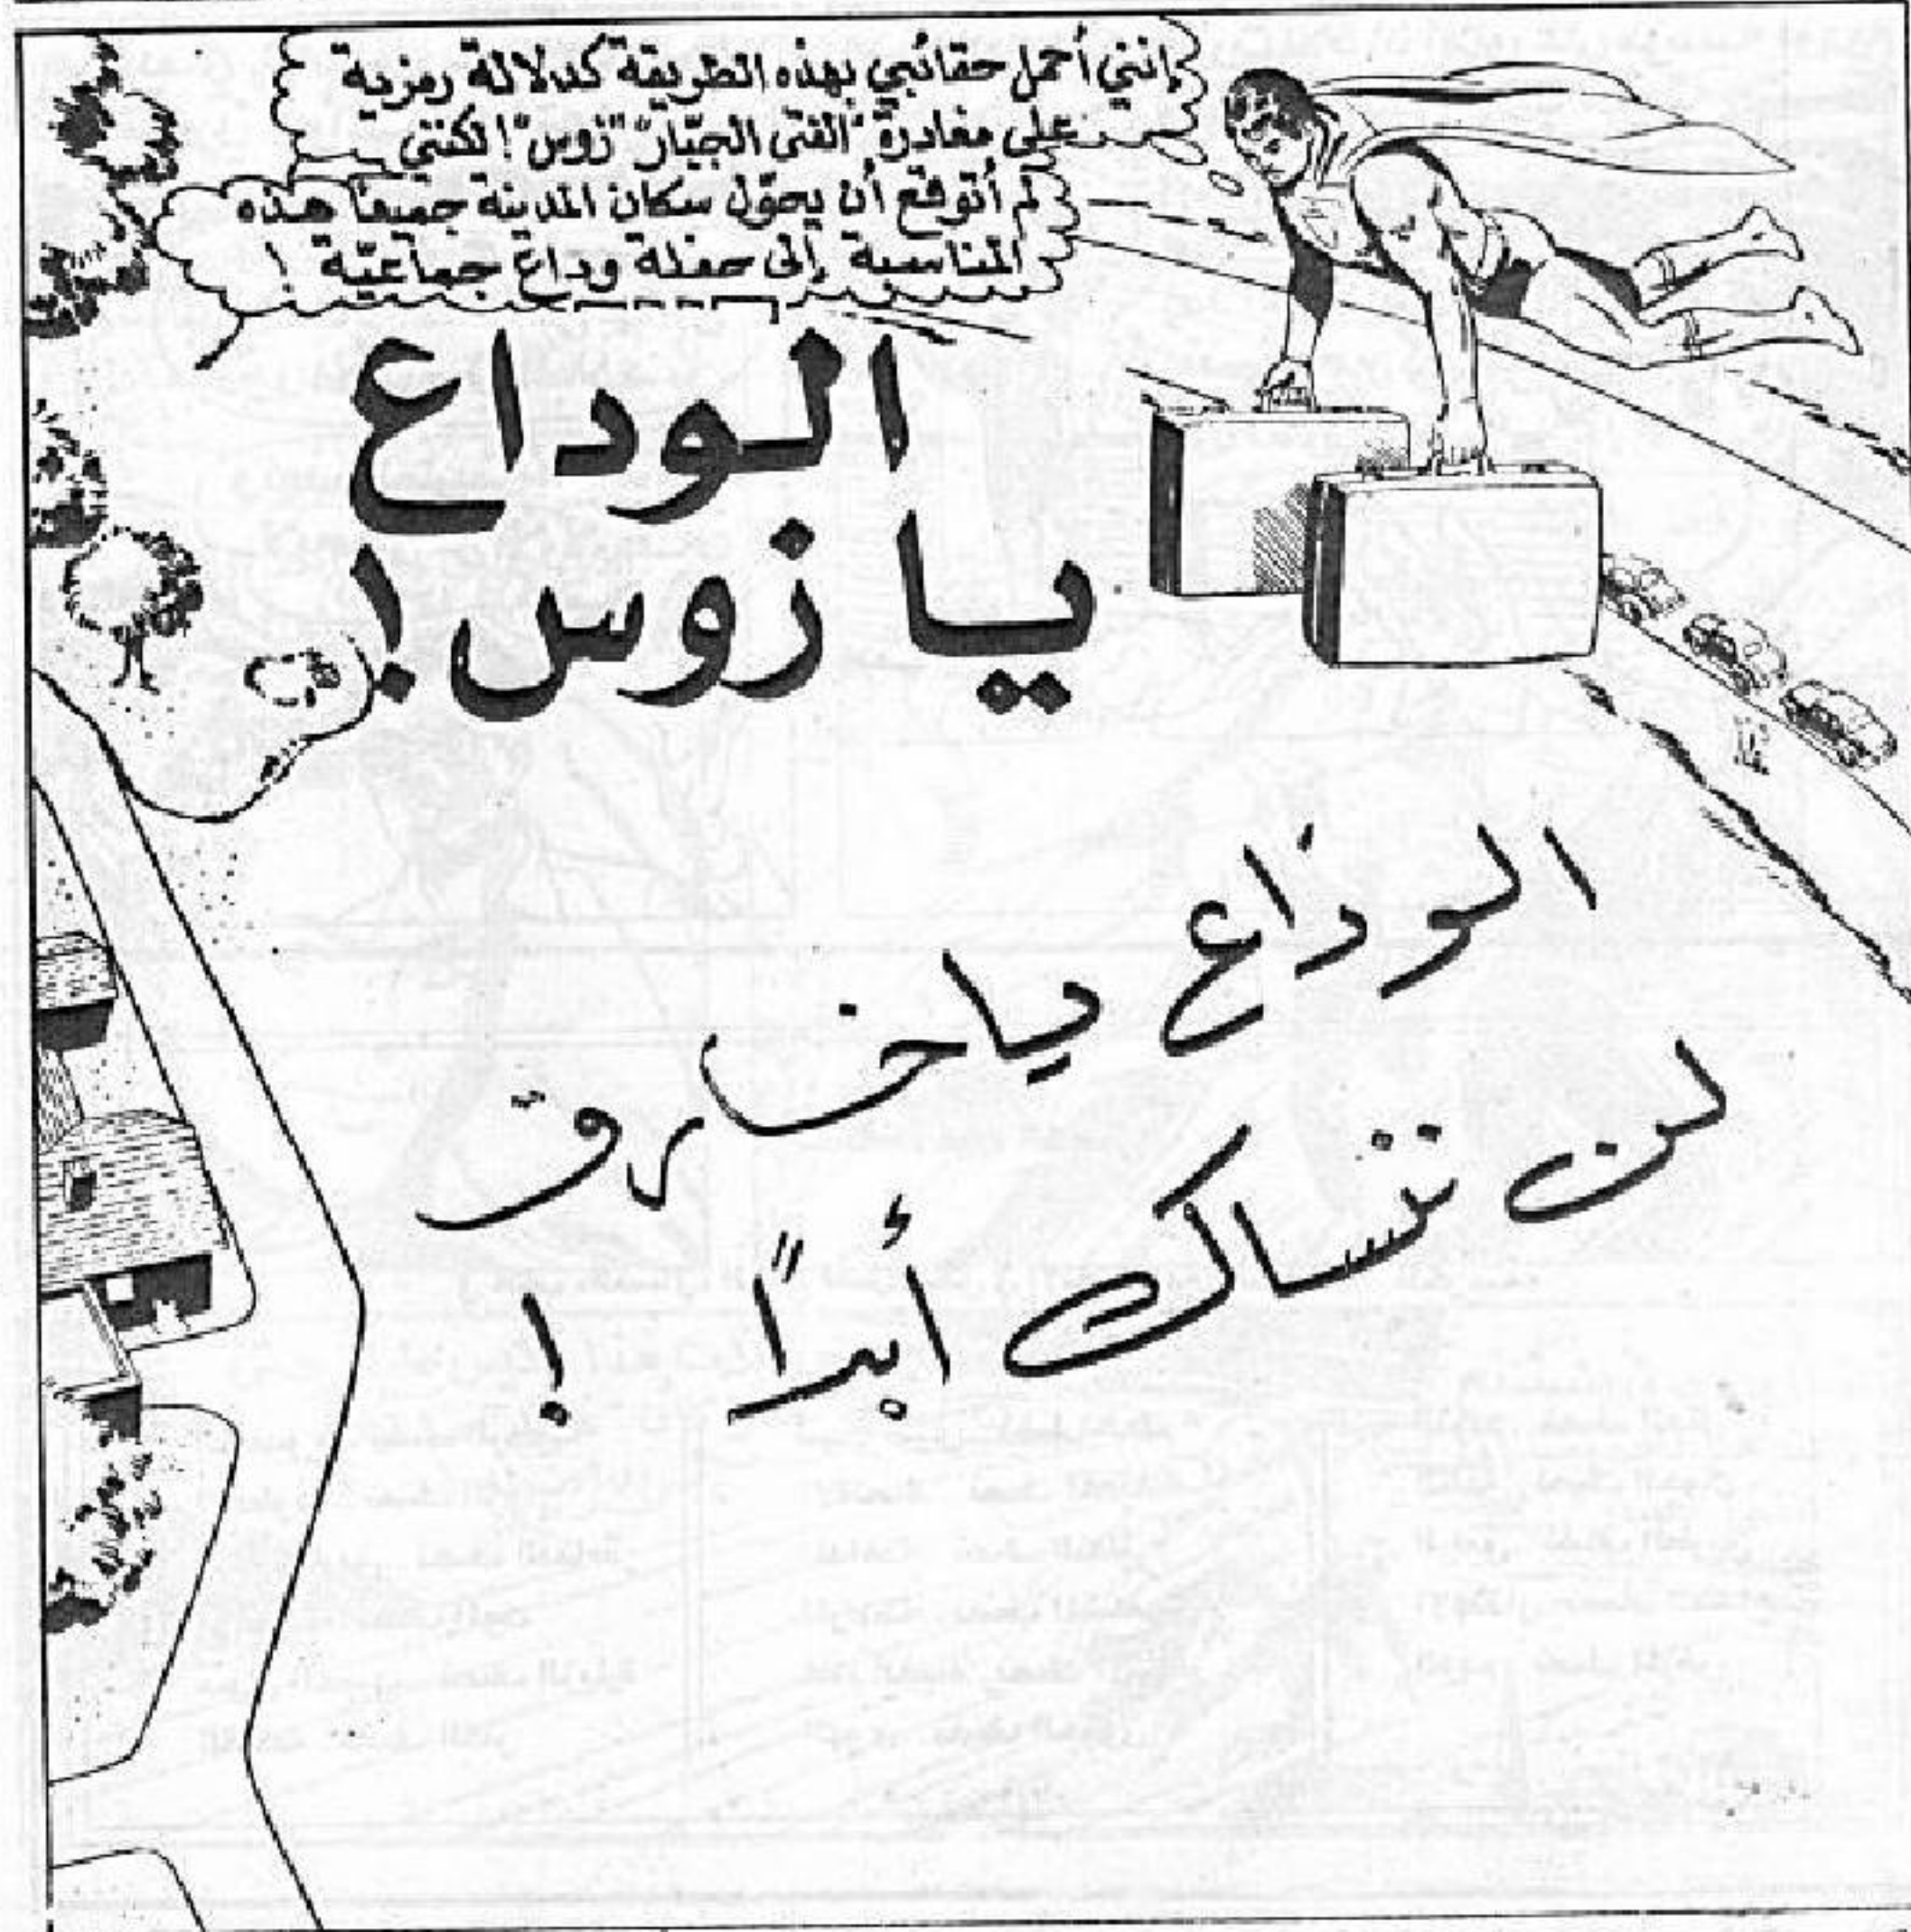 إنني أحمل حقائبي بهذه الطريقة كدلالة رمزية
على مغادرة "الفتى الجبّار" "زوس"! لكنني
لم أتوقع أن يحوّل سكان المدينة جميعًا هذه
المناسبة إلى حفلة وداع جماعيّة !
الوداع
يا زوس !
الوداع يا خارق
لن ننساك أبدًا !